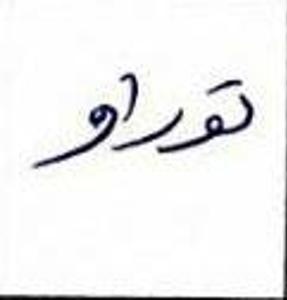 توراو